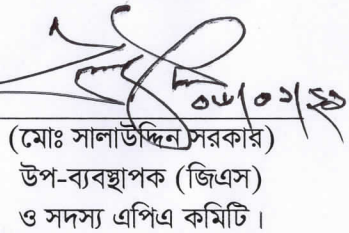 (মোঃ সালাউদ্দিন সরকার)
উপ-ব্যবস্থাপক (জিএস)
ও সদস্য এপিএ কমিটি।